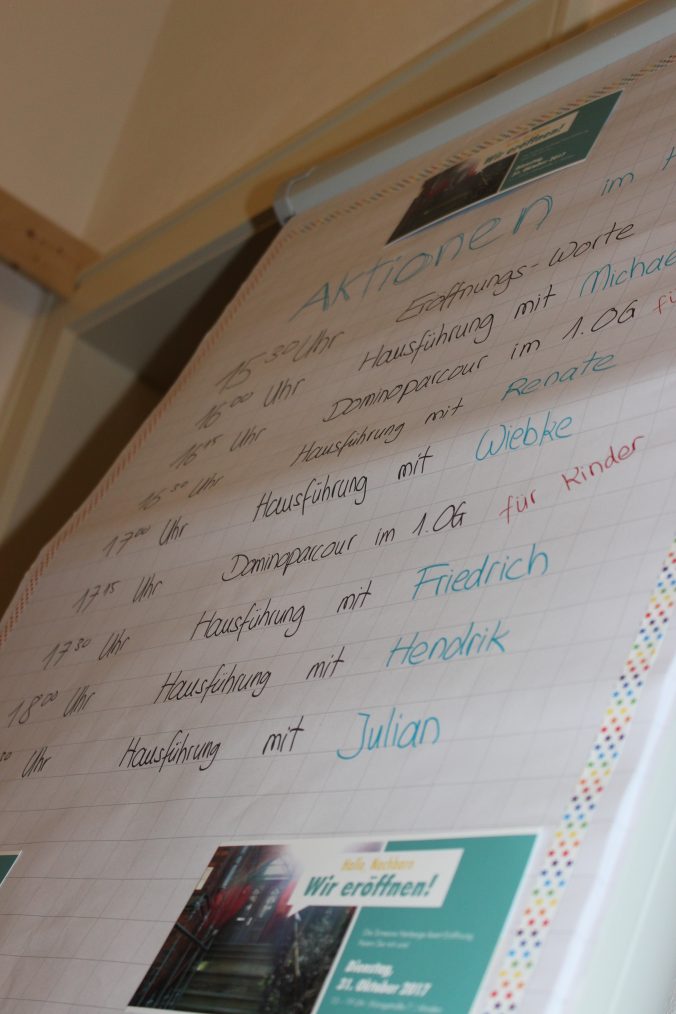 Wir eröffnen!
Aktionen im
15³⁰ Uhr Eröffnungs-Worte
16⁰⁰ Uhr Hausführung mit Michae
16¹⁵ Uhr Dominoparcour im 1.OG für
16³⁰ Uhr Hausführung mit Renate
17⁰⁰ Uhr Hausführung mit Wiebke
17¹⁵ Uhr Dominoparcour im 1.OG für Kinder
17³⁰ Uhr Hausführung mit Friedrich
18⁰⁰ Uhr Hausführung mit Hendrik
³⁰ Uhr Hausführung mit Julian
Hallo, Nachbarn
Wir eröffnen!
Dienstag,
31. Oktober 2017